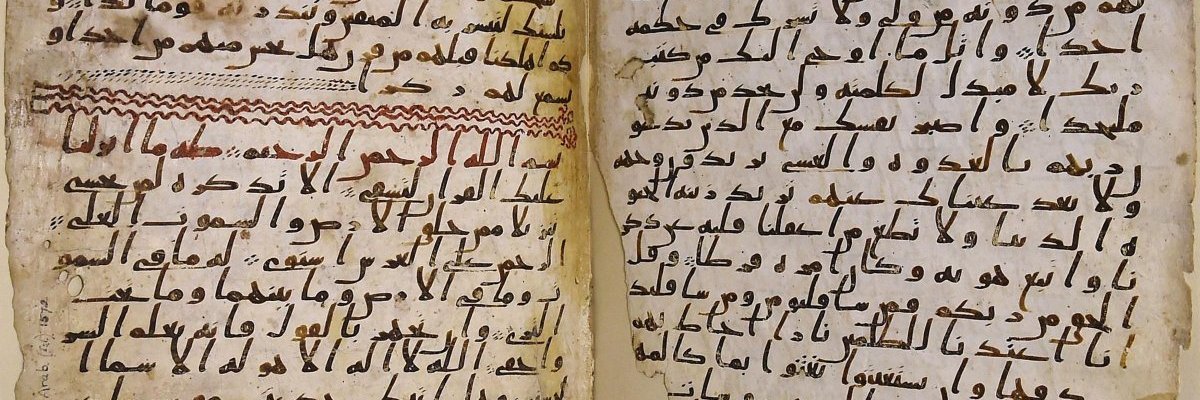 لهم من دونه من ولي ولا يشرك في حكمه
احدا واتل ما اوحي اليك من كتب
ربك لا مبدل لكلمته ولن تجد من دونه
ملتحدا واصبر نفسك مع الذين يدعون
ربهم بالغدوه والعشي يريدون وجهه
ولا تعد عينك عنهم تريد زينه الحيو
ه الدنيا ولا تطع من اغفلنا قلبه عن ذكر
نا واتبع هويه وكان امره فرطا وقل
الحق من ربكم فمن شا فليومن ومن شا فليكفر
انا اعتدنا للظلمين نارا احاط بهم
سرادقها وان يستغيثوا يغثوا بما كالمهل
بلسنك لتبشر به المتقين وتنذر به قوما لدا و
كم اهلكنا قبلهم من قرن هل تحس منهم من احد او
تسمع لهم ركزا
بسم الله الرحمن الرحيم طه ما انزلنا
عليك القران لتشقى الا تذكره لمن يخشى
تنزيلا ممن خلق الارض والسموت العلى
الرحمن على العرش استوى له ما في السمو
ت وما في الارض وما بينهما وما تحت
الثرى وان تجهر بالقول فانه يعلم السر
واخفى الله لا اله الا هو له الاسما ا